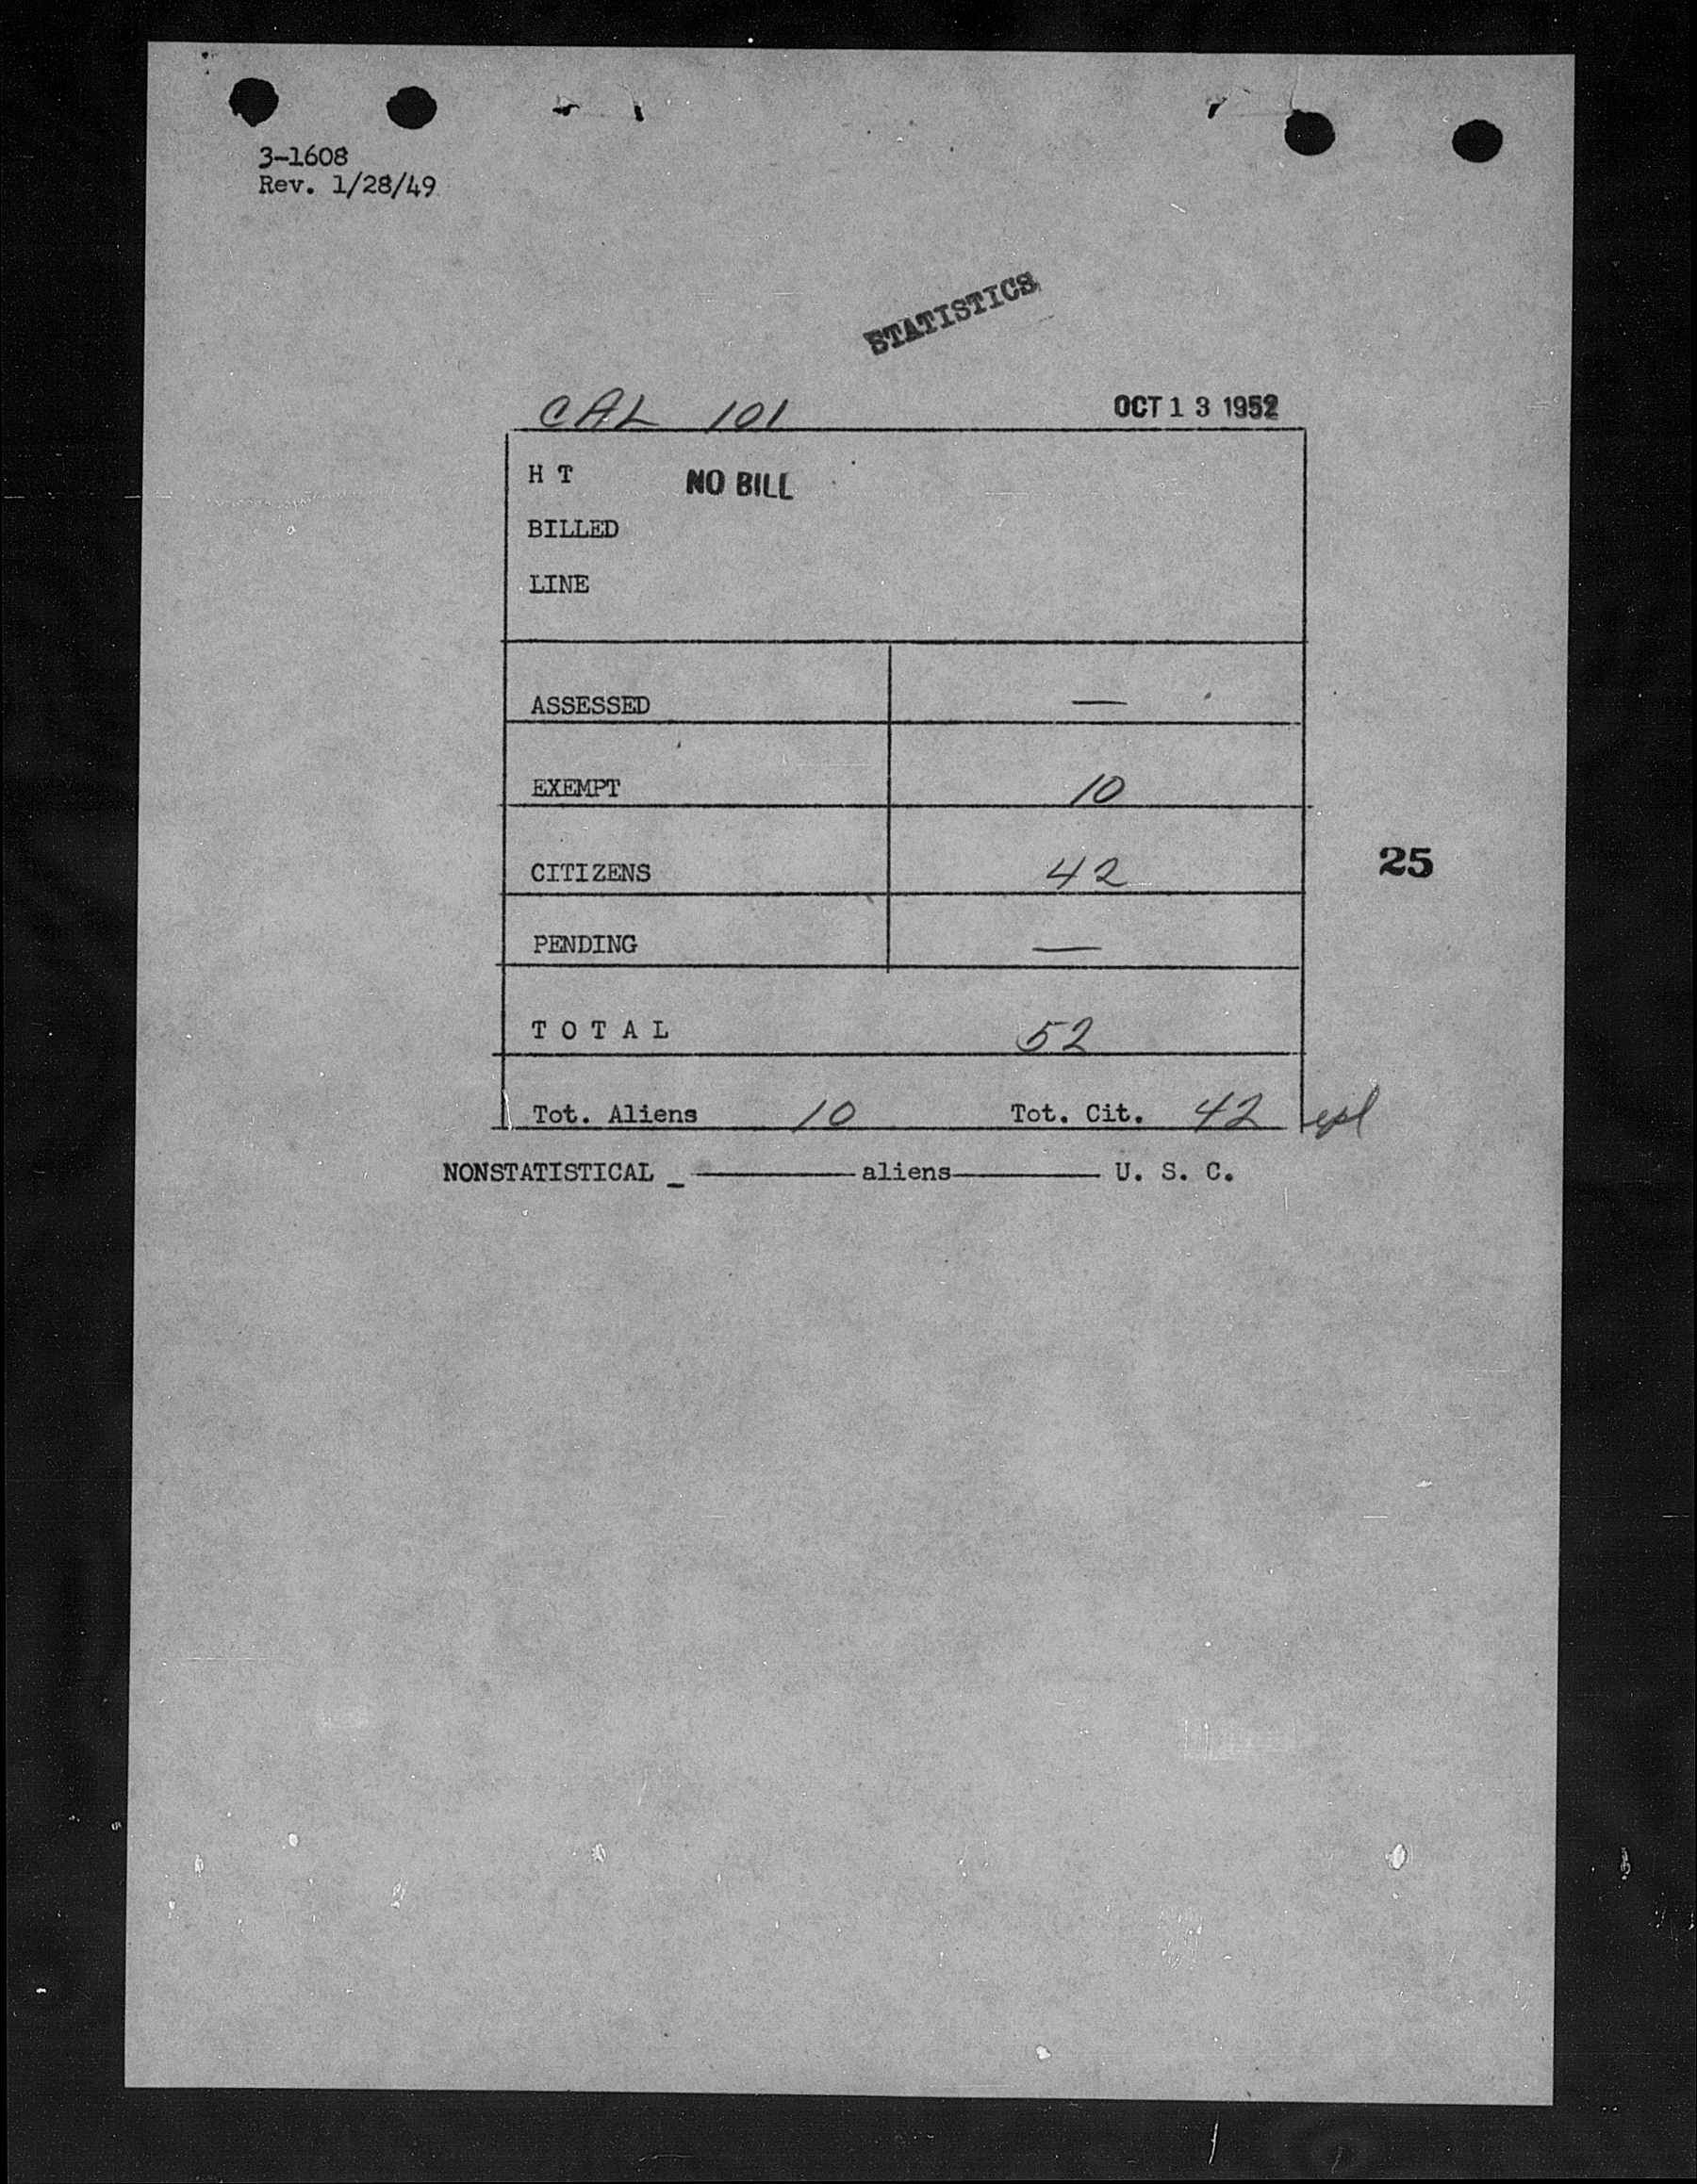 3-1608
Rev. 1/28/49
STATISTICS
CAL 101 OCT 13 1952
H T NO BILL
BILLED
LINE
ASSESSED —
EXEMPT 10
CITIZENS 42
25
PENDING —
T O T A L 52
Tot. Aliens 10 Tot. Cit. 42
NONSTATISTICAL _ ——— aliens ——— U. S. C.